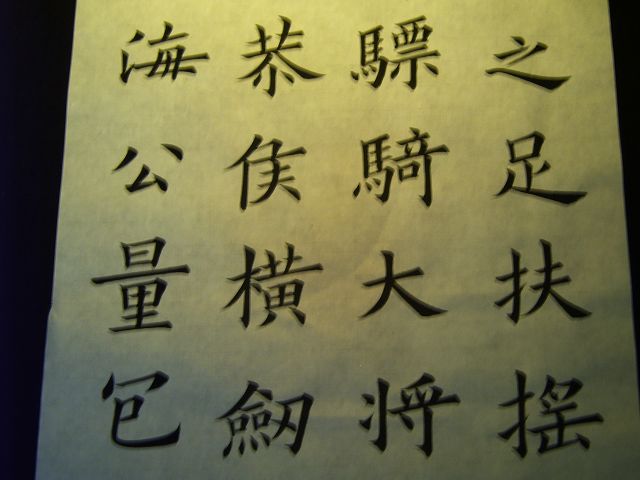 之足扶摇
驃騎大将
恭侯横劒
海公量包